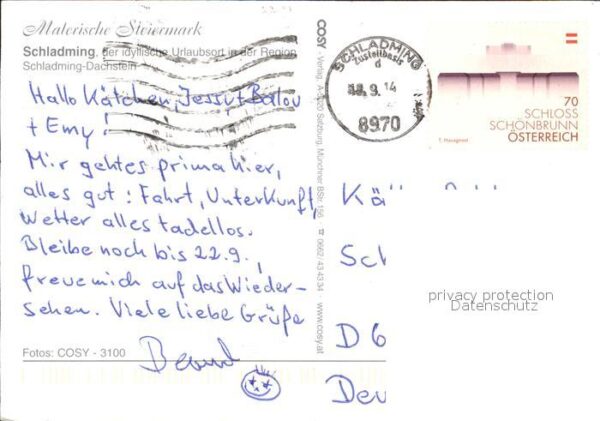 Malerische Steiermark
Schladming, der idyllische Urlaubsort in der Region
Schladming-Dachstein
Hallo Kätchen, Jessy + Balou
+ Emy!
Mir geht es prima hier,
alles gut: Fahrt, Unterkunft,
Wetter alles tadellos.
Bleibe noch bis 22.9.,
freue mich auf das Wieder-
sehen. Viele liebe Grüße
Bernd
Fotos: COSY - 3100
COSY Verlag, Salzburg, Münchner BStr. 156 ☎ 0662/43 43 34 www.cosy.at
SCHLADMING
Zustellbasis
d
.9.14
8970
70
SCHLOSS
SCHÖNBRUNN
ÖSTERREICH
Kä
Sch
privacy protection
Datenschutz
D 6
Deu